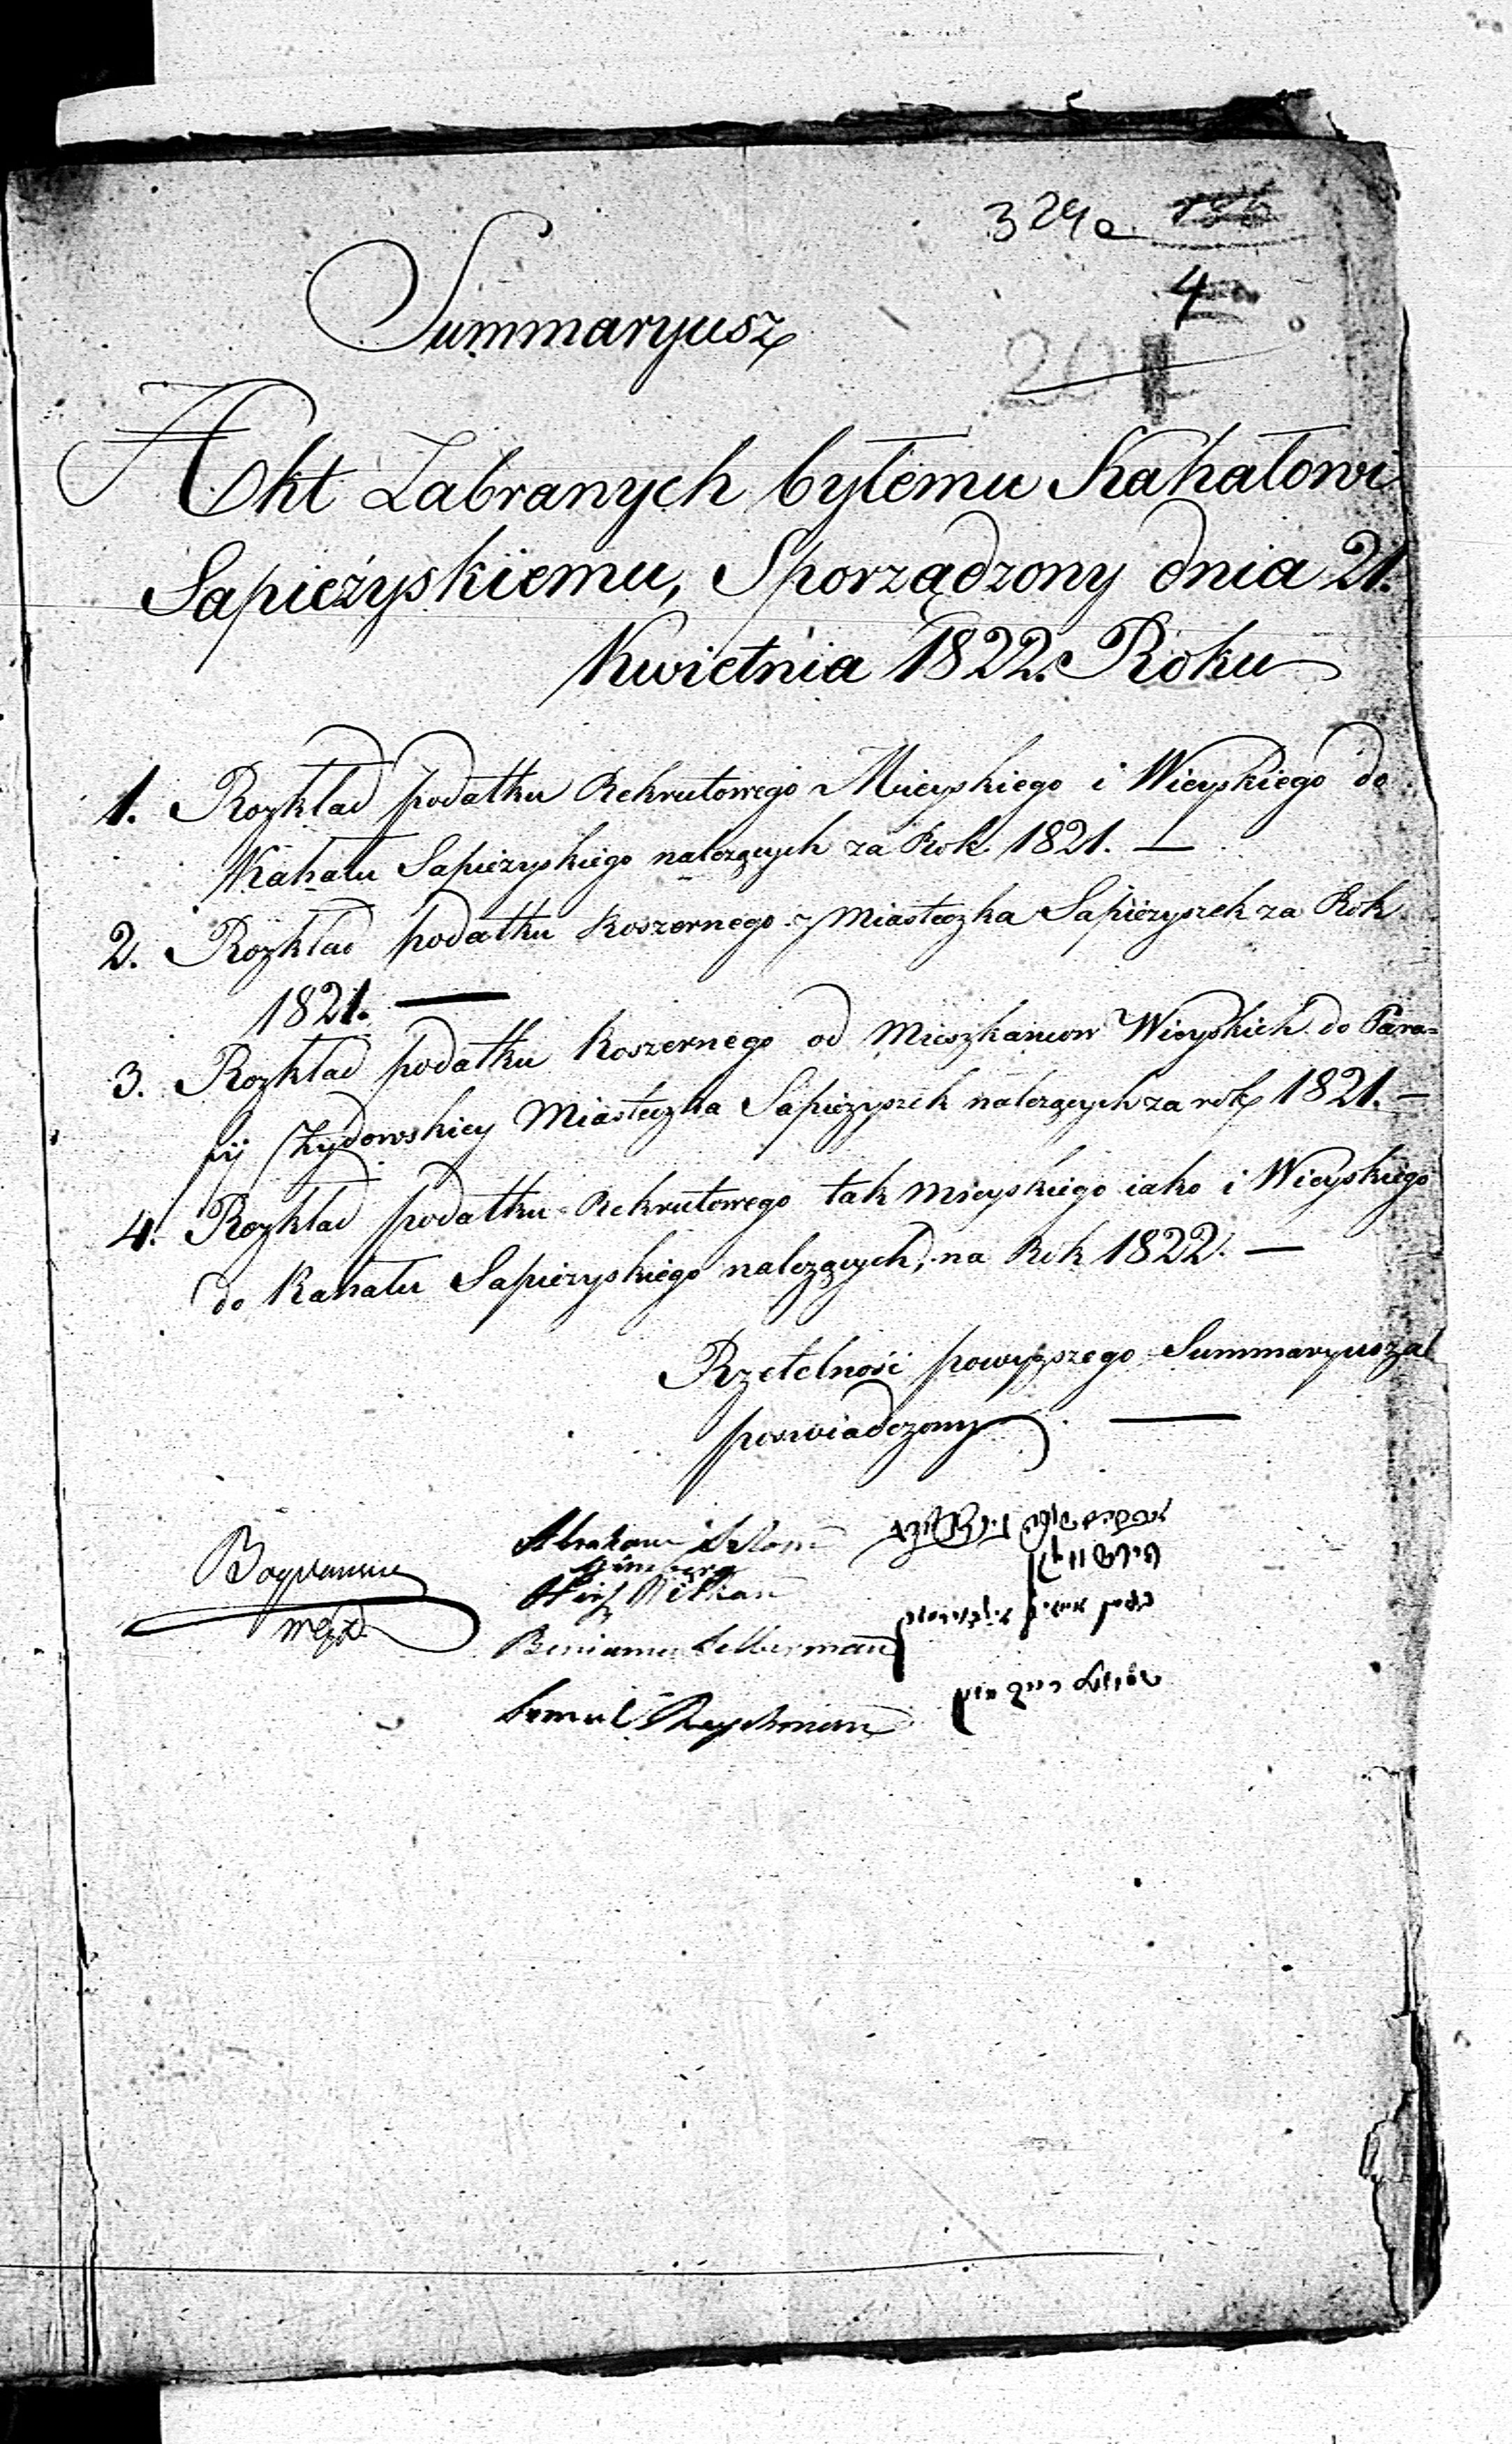 324a
4
201
Summaryusz
Akt Zabranych byłemu Kahałowi
Sapieżyskiemu, Sporządzony dnia 21.
Kwietnia 1822. Roku
1. Rozkład podatku Rekrutowego Mieyskiego i Wieyskiego do
Kahału Sapieżyskiego należących za Rok 1821. —
2. Rozkład podatku Koszernego z Miasteczka Sapieżyszek za Rok
1821. —
3. Rozkład podatku Koszernego od Mieszkancow Wieyskich do Para=
fij Żydowskiey Miasteczka Sapieżyszek należących za rok 1821. —
4. Rozkład podatku Rekrutowego tak Mieyskiego iako i Wieyskiego
do Kahału Sapieżyskiego należących, na Rok 1822. —
Rzetelność powyższego Summaryusza
poswiadczamy —
Abraham
Hirsz
Beniamin Silberman
Szmul